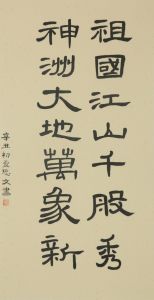 祖國江山千般秀
神洲大地萬象新
辛丑初夏忠文書